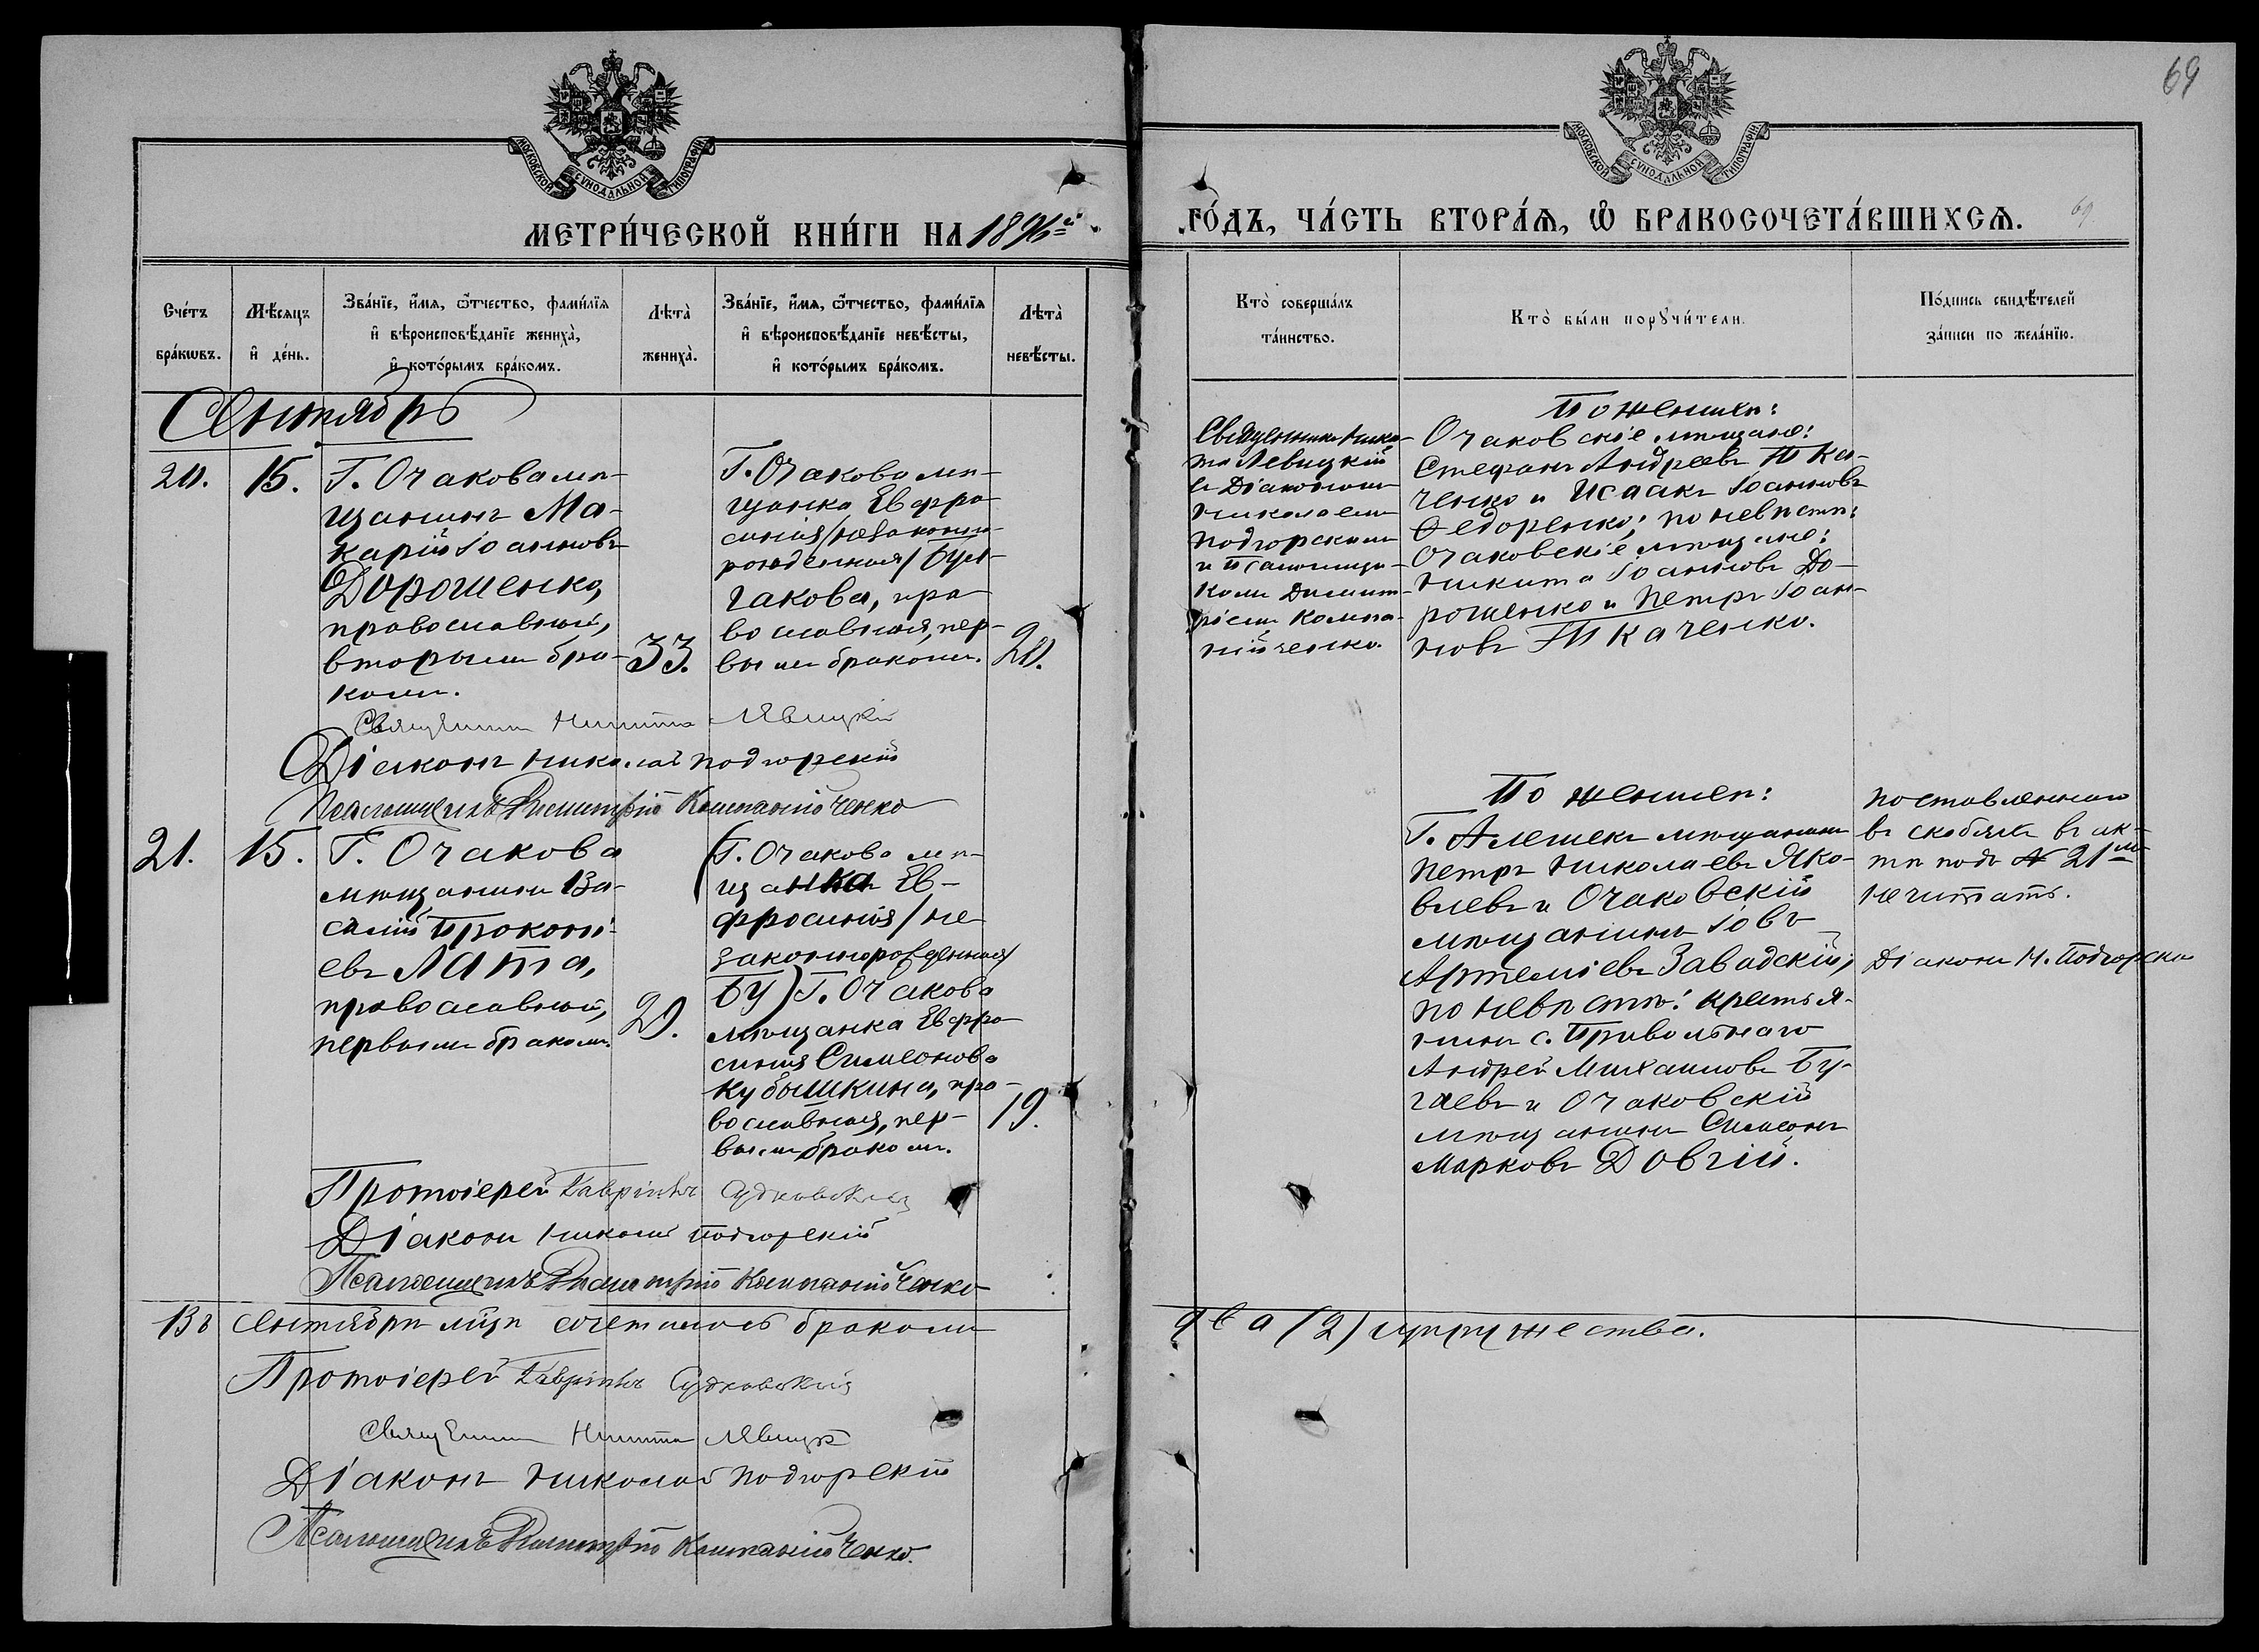 69
МОСКОВСКОЙ СѴНОДАЛЬНОЙ ТИПОГРАФІИ
МОСКОВСКОЙ СѴНОДАЛЬНОЙ ТИПОГРАФІИ
МЕТРИ́ЧЕСКОЙ КНИ́ГИ НА 1896й
ГО́ДЪ, ЧА́СТЬ ВТОРА́Ѧ, Ѽ БРАКОСОЧЕТА́ВШИХСѦ.
69
Сче́тъ бра́кѡвъ.
Мѣ́сяцъ и҆ де́нь.
Зва́нїе, и҆́мя, ѻ҆́тчество, фами́лїя и҆ вѣроисповѣ́данїе жениха̀, и҆ кото́рымъ бра́комъ.
Лѣта̀ жениха̀.
Зва́нїе, и҆́мя, ѻ҆́тчество, фами́лїя и҆ вѣроисповѣ́данїе невѣ́сты, и҆ кото́рымъ бра́комъ.
Лѣта̀ невѣ́сты.
Кто̀ соверша́лъ та́инство.
Кто̀ бы́ли порꙋчи́тели.
По́дпись свидѣ́телей за́писи по жела́нїю.
Сентябрь
20.
15.
Г. Очакова мѣ-
щанинъ Ма-
карій Іоанновъ
Дорошенко,
православный,
вторымъ бра-
комъ.
33.
Г. Очакова мѣ-
щанка Евфро-
синія /незаконно-
рожденная/ Буг-
чакова, пра-
вославная, пер-
вымъ бракомъ.
20.
Священникъ Ники-
та Левицкій
съ Діакономъ
Николаемъ
Подгорскимъ
и Псаломщи-
комъ Димит-
ріемъ Компа-
нійченко.
По женихѣ:
Очаковскіе мѣщане:
Стефанъ Андреевъ Тка-
ченко и Исаакъ Іоанновъ
Ѳедоренко; по невѣстѣ:
Очаковскіе мѣщане:
Никита Іоанновъ До-
рошенко и Петръ Іоан-
новъ Ткаченко.
Священникъ Никита Левицкій
Діаконъ Николай Подгорскій
Псаломщикъ Димитрій Компанійченко
21.
15.
Г. Очакова
мѣщанинъ Ва-
силій Прокопі-
евъ Лата,
православный,
первымъ бракомъ.
20.
(Г. Очакова мѣ-
щанка Ев-
фросинія /не
законнорожденная/
Бу) Г. Очакова
мѣщанка Евфро-
синія Симеонова
Кубышкина, пра-
вославная, пер-
вымъ бракомъ.
19.
По женихѣ:
Г. Алешекъ мѣщанинъ
Петръ Николаевъ Яко-
влевъ и Очаковскій
мѣщанинъ Іовъ
Артеміевъ Завадскій;
по невѣстѣ: крестья-
нинъ с. Привольнаго
Андрей Михаиловъ Бу-
гаевъ и Очаковскій
мѣщанинъ Симеонъ
Марковъ Довгій.
поставленнаго
въ скобкахъ въ ак-
тѣ подъ № 21мъ
не читать.
Діаконъ Н. Подгорскій
Протоіерей Гавріилъ Судковскій
Діаконъ Николай Подгорскій
Псаломщикъ Димитрій Компанійченко
Въ Сентябрѣ мцѣ сочеталось бракомъ
два (2) супружества.
Протоіерей Гавріилъ Судковскій
Священникъ Никита Левицкій
Діаконъ Николай Подгорскій
Псаломщикъ Димитрій Компанійченко.